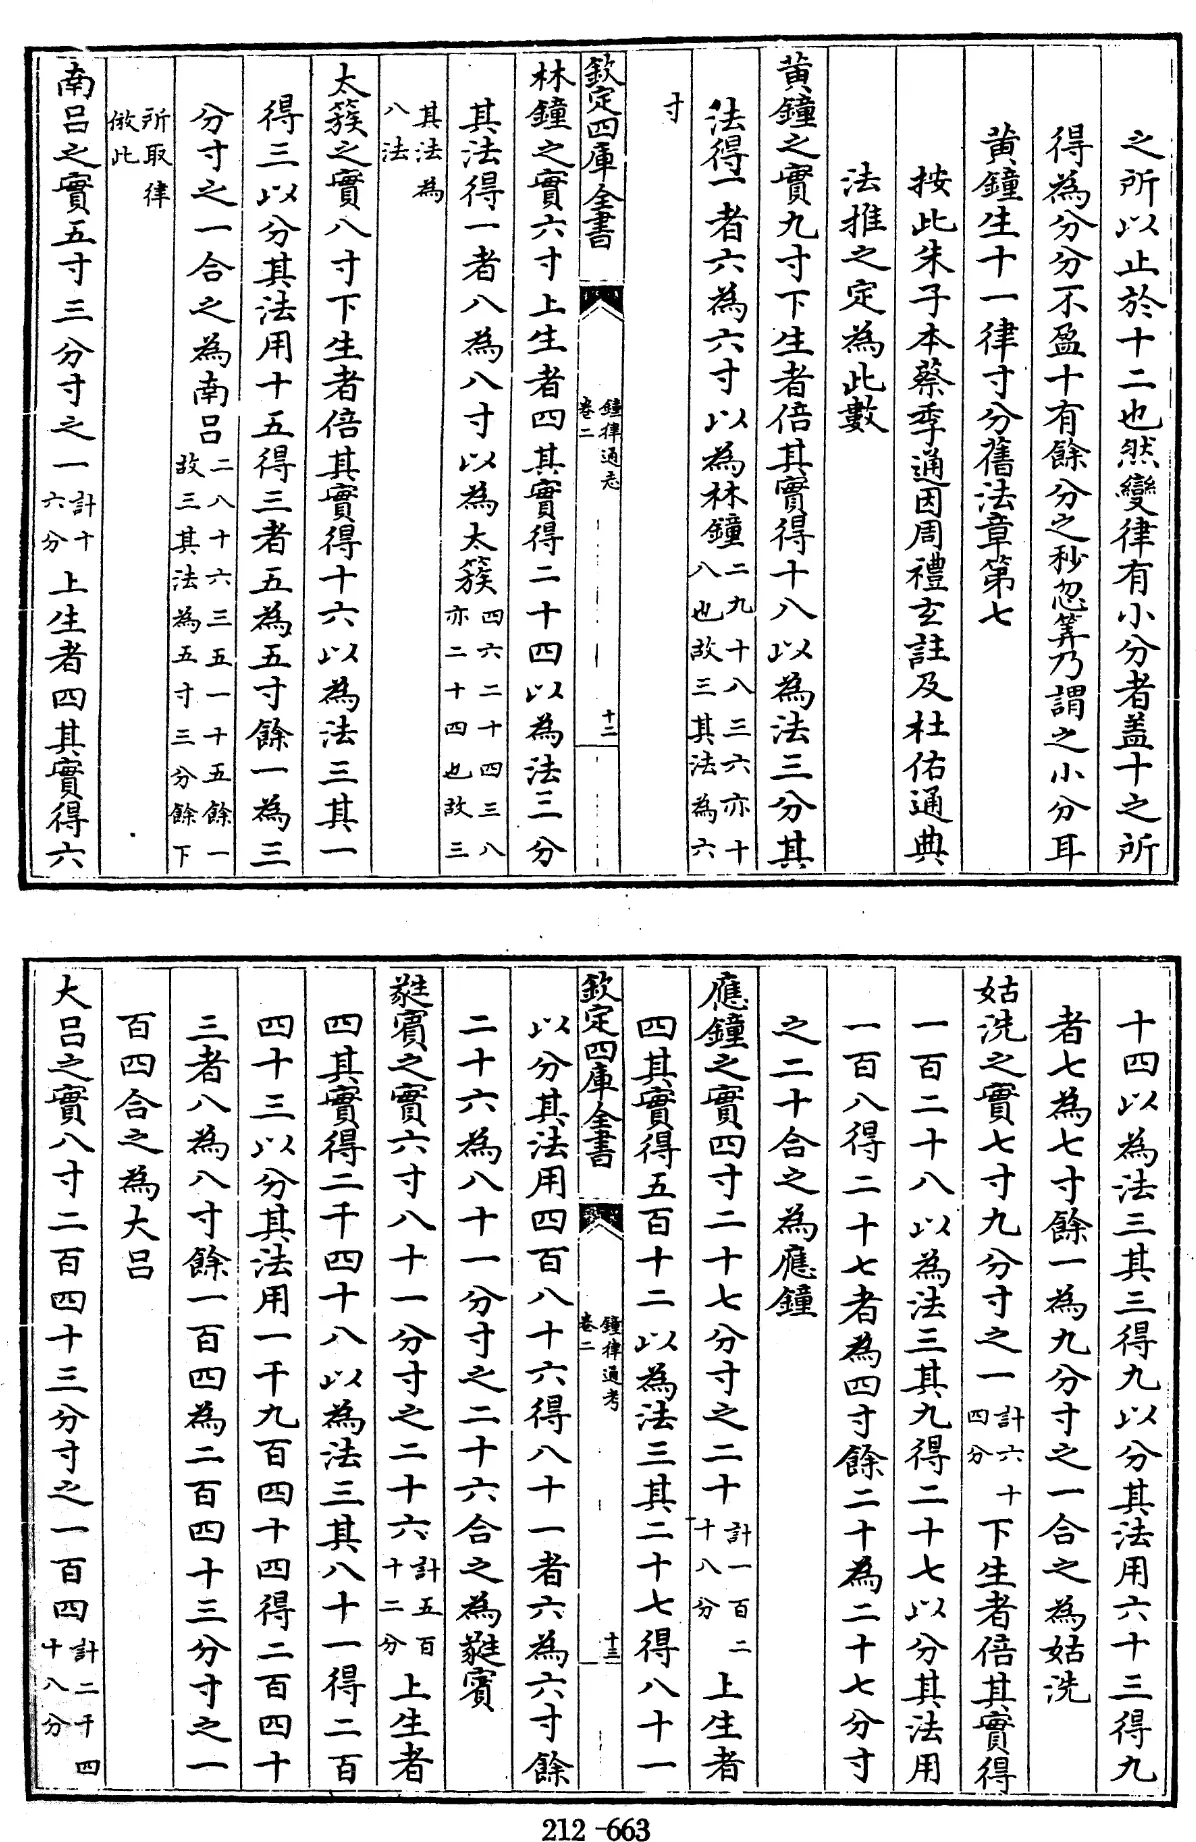 之所以止於十二也然變律有小分者蓋十之所
得為分分不盈十有餘分之秒忽筭乃謂之小分耳
黃鐘生十一律寸分舊法章第七
按此朱子本蔡季通因周禮玄註及杜佑通典
法推之定為此數
黃鐘之實九寸下生者倍其實得十八以為法三分其
法得一者六為六寸以為林鐘二九十八三六亦十
八也故三其法為六
寸
欽定四庫全書
鐘律通考
卷二
十二
林鐘之實六寸上生者四其實得二十四以為法三分
其法得一者八為八寸以為太簇四六二十四三八
亦二十四也故三
其法為
八法
太簇之實八寸下生者倍其實得十六以為法三其一
得三以分其法用十五得三者五為五寸餘一為三
分寸之一合之為南呂二八十六三五一十五餘一
故三其法為五寸三分餘下
所取律
倣此
南呂之實五寸三分寸之一計十
六分上生者四其實得六
十四以為法三其三得九以分其法用六十三得九
者七為七寸餘一為九分寸之一合之為姑洗
姑洗之實七寸九分寸之一計六十
四分下生者倍其實得
一百二十八以為法三其九得二十七以分其法用
一百八得二十七者為四寸餘二十為二十七分寸
之二十合之為應鐘
應鐘之實四寸二十七分寸之二十計一百二
十八分上生者
四其實得五百十二以為法三其二十七得八十一
欽定四庫全書
鐘律通考
卷二
十三
以分其法用四百八十六得八十一者六為六寸餘
二十六為八十一分寸之二十六合之為蕤賓
蕤賓之實六寸八十一分寸之二十六計五百
十二分上生者
四其實得二千四十八以為法三其八十一得二百
四十三以分其法用一千九百四十四得二百四十
三者八為八寸餘一百四為二百四十三分寸之一
百四合之為大呂
大呂之實八寸二百四十三分寸之一百四計二千四
十八分
212-663